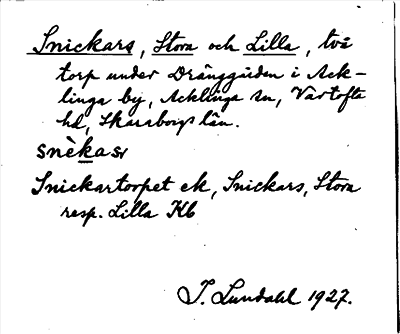 Snickars, Stora och Lilla, två
torp under Dränggården i Ack-
linga by, Acklinga sn, Vartofta
hd, Skaraborgs län.
snèkasr
Snickartorpet ek, Snickars, Stora
resp. Lilla Kb
J. Lundahl 1927.